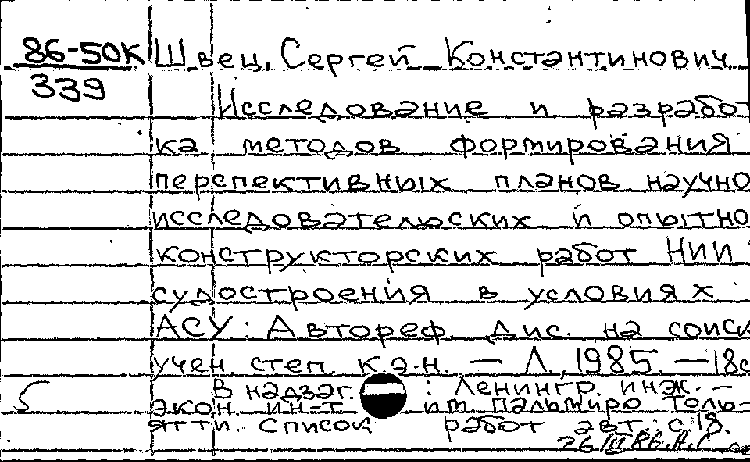 86-50К Швец, Сергей Константинович
339
Исследование и разработ
ка методов формирования
перспективных планов научно
исследовательских и опытно
конструкторских работ НИИ
судостроения в условиях
АСУ: Автореф. дис. на соиск
учен. степ. к.э.н. — Л., 1985. — 18с
В надзаг.: Ленингр. инж.-
5 экон. ин-т им. Пальмиро Толь-
ятти. Список работ авт.: с.18.